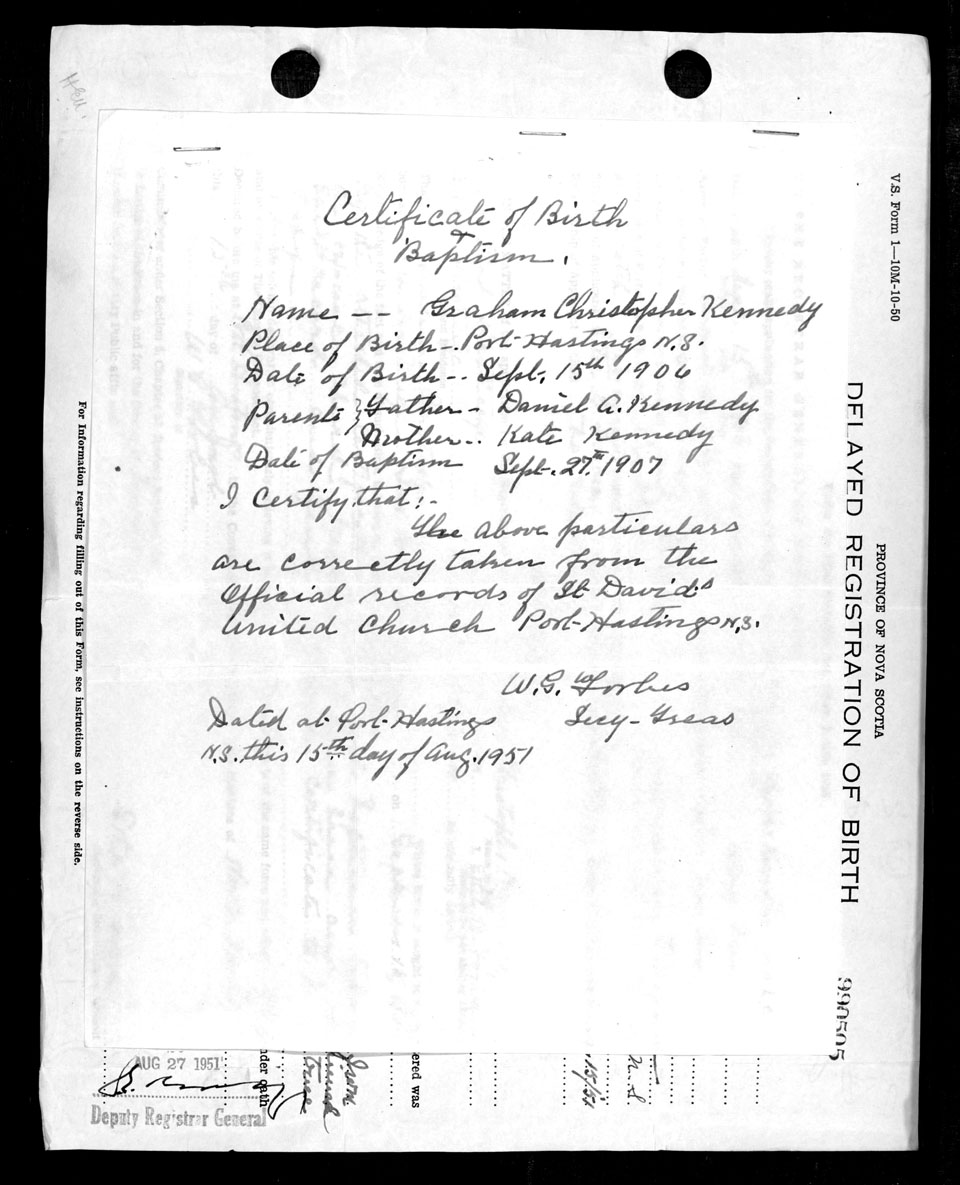 Certificate of Birth
&
Baptism.
Name -- Graham Christopher Kennedy
Place of Birth -. Port Hastings N.S.
Date of Birth -. Sept. 15th 1906
Parents } Father - Daniel A. Kennedy
Mother -. Kate Kennedy
Date of Baptism Sept. 27th 1907
I certify that:-
The above particulars
are correctly taken from the
Official records of St David's
United Church Port Hastings N.S.
W. G. Forbes
Secy-Treas
Dated at Port Hastings
N.S. this 15th day of Aug. 1951
V.S. Form 1—10M-10-50
PROVINCE OF NOVA SCOTIA
DELAYED REGISTRATION OF BIRTH
990505
For Information regarding filling out of this Form, see instructions on the reverse side.
N.S
15/51
ered was
nder oath
AUG 27 1951
Deputy Registrar General